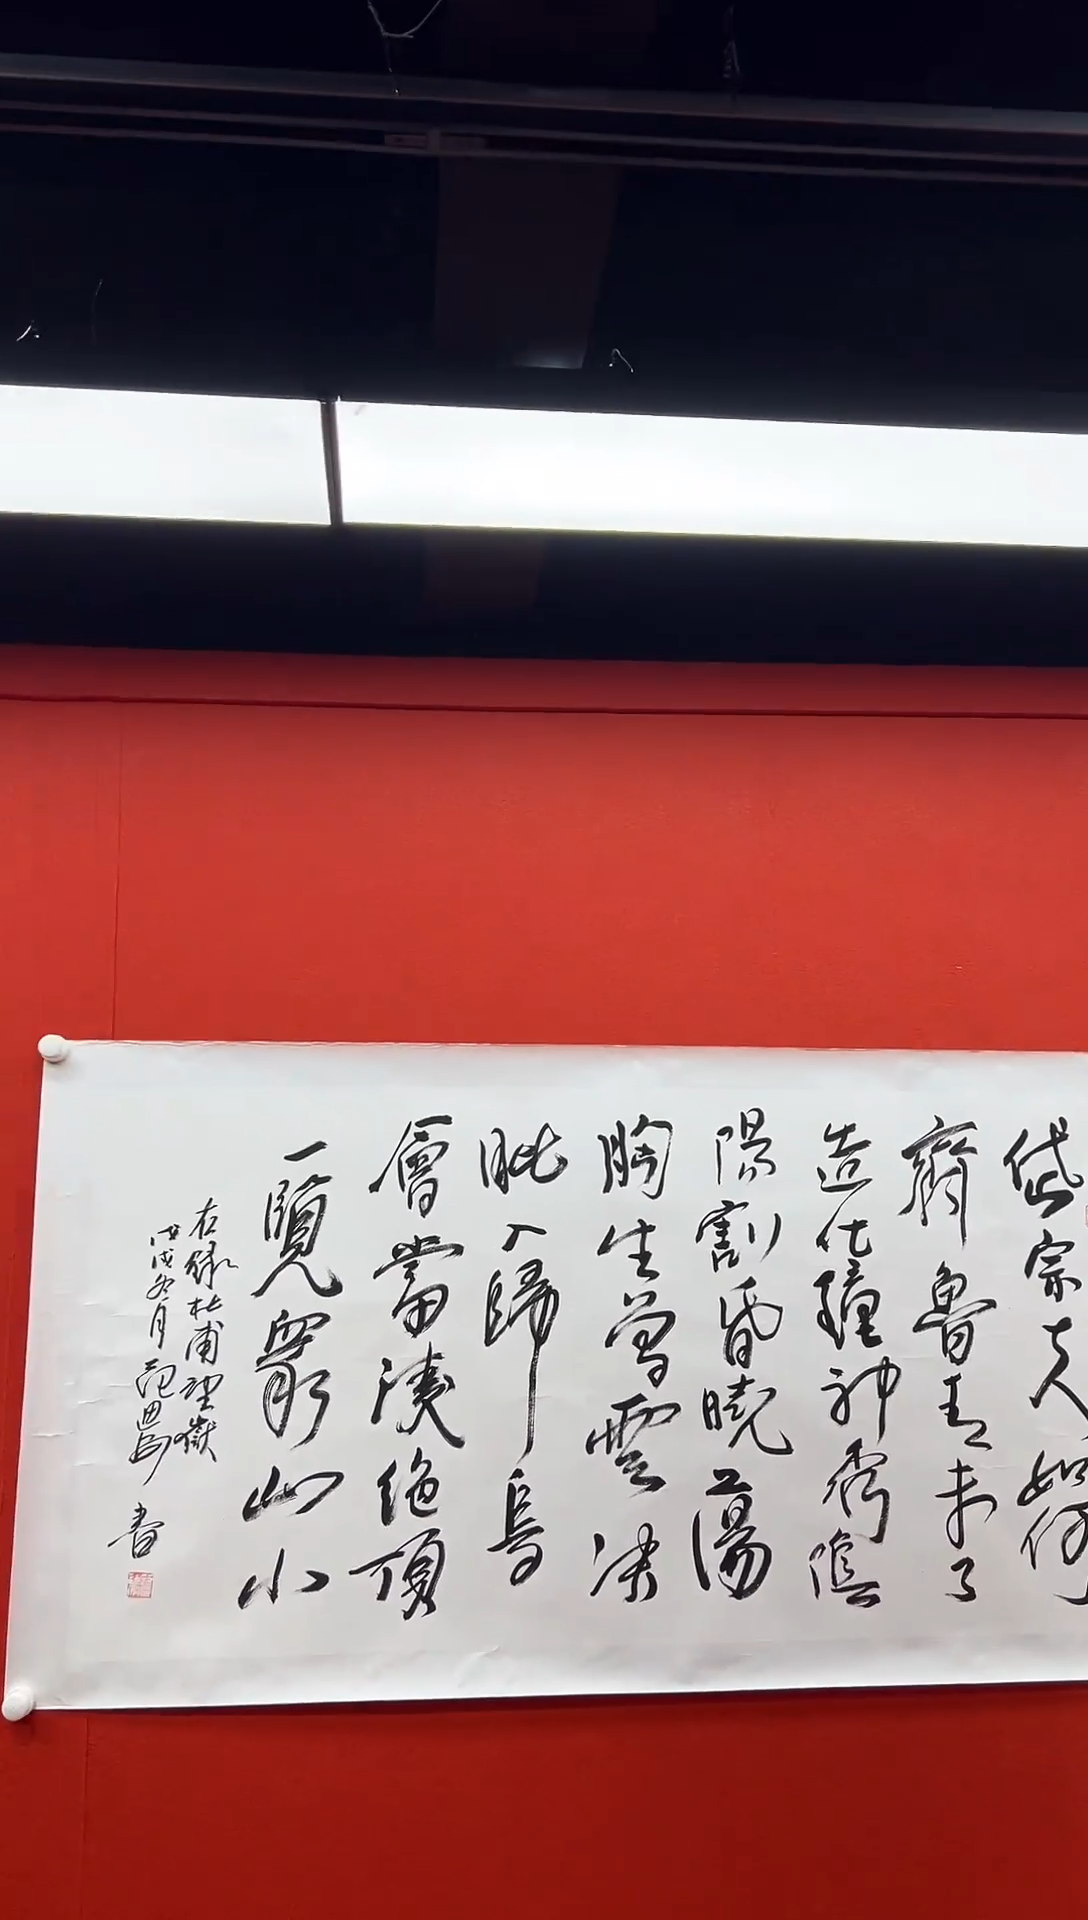 岱宗夫如何
齊魯青未了
造化鐘神秀陰
陽割昏曉蕩
胸生曾雲決
眦入歸鳥
會當淩絶頂
一覽眾山小
右録杜甫望嶽
戊戌冬月范書